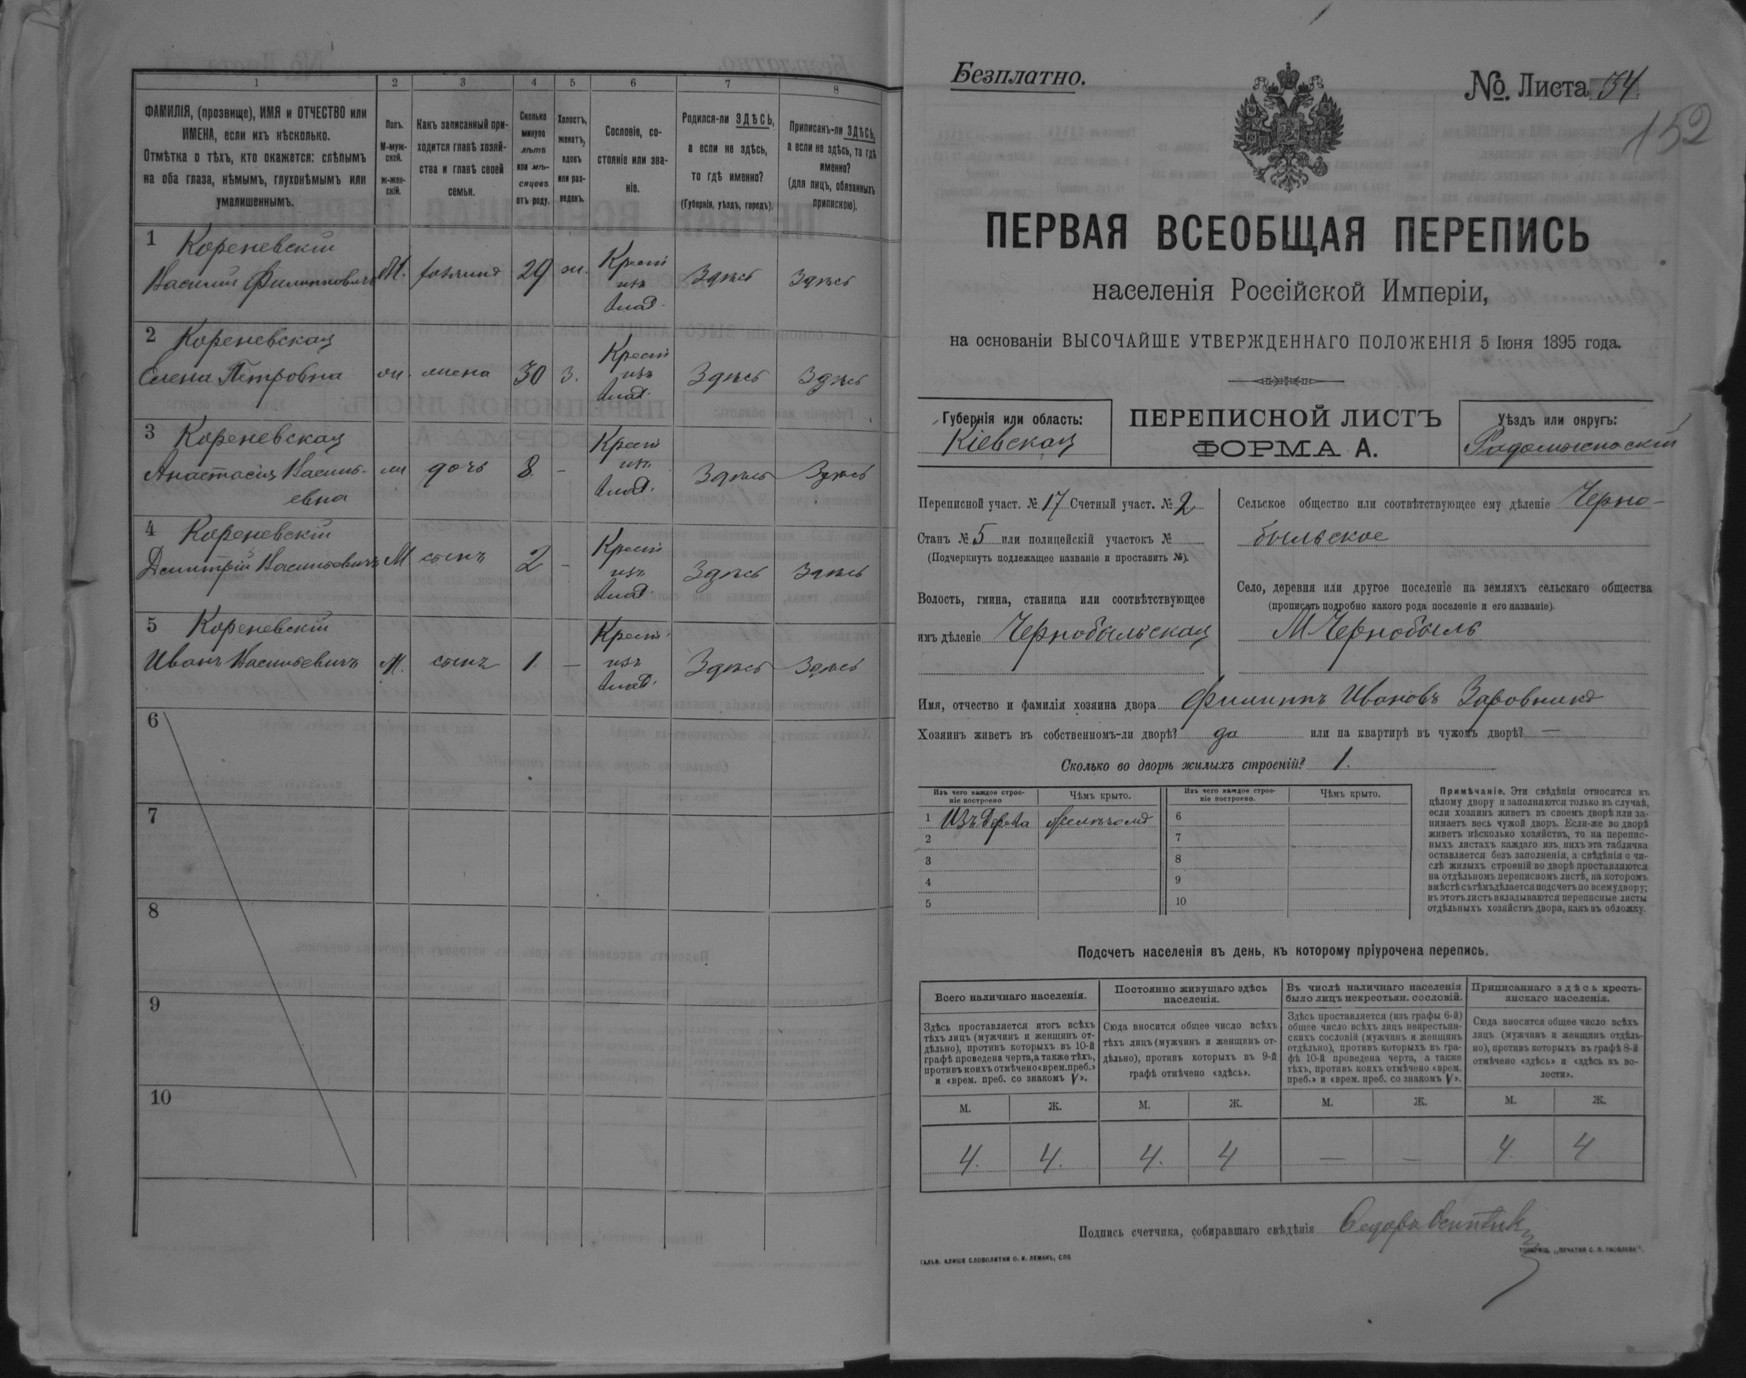 1
2
3
4
5
6
7
8
ФАМИЛІЯ, (прозвище), ИМЯ и ОТЧЕСТВО или
ИМЕНА, если ихъ нѣсколько.
Отмѣтка о тѣхъ, кто окажется: слѣпымъ
на оба глаза, нѣмымъ, глухонѣмымъ или
умалишеннымъ.
Полъ.
М-муж-
ской.
ж-жен-
скій.
Какъ записанный при-
ходится главѣ хозяй-
ства и главѣ своей
семьи.
Сколько
минуло
лѣтъ
или мѣ-
сяцевъ
отъ роду.
Холостъ,
женатъ,
вдовъ
или раз-
веденъ.
Сословіе, со-
стояніе или зва-
ніе.
Родился-ли ЗДѢСЬ,
а если не здѣсь,
то гдѣ именно?
(Губернія, уѣздъ, городъ).
Приписанъ-ли ЗДѢСЬ,
а если не здѣсь, то гдѣ
именно?
(для лицъ, обязанныхъ
припискою).
1 Кореневскій
Василій Филипповичъ М. 29 ж. Крест изъ влад. Здѣсь Здѣсь
2 Кореневская
Елена Петровна ж. жена 30 З. Крест изъ влад. Здѣсь Здѣсь
3 Кореневская
Анастасія Василь-
евна ж дочь 8 - Крест изъ влад. Здѣсь Здѣсь
4 Кореневскій
Дмитрій Васильевичъ М сынъ 2 - Крест изъ влад. Здѣсь Здѣсь
5 Кореневскій
Иванъ Васильевичъ М. сынъ 1 - Крест изъ влад. Здѣсь Здѣсь
6
7
8
9
10
Безплатно.
№ Листа 134
152
ПЕРВАЯ ВСЕОБЩАЯ ПЕРЕПИСЬ
населенія Россійской Имперіи,
на основаніи ВЫСОЧАЙШЕ УТВЕРЖДЕННАГО ПОЛОЖЕНІЯ 5 Іюня 1895 года.
Губернія или область:
Кіевская
ПЕРЕПИСНОЙ ЛИСТЪ
ФОРМА А.
Уѣздъ или округъ:
Радомысльскій
Переписной участ. № 17 Счетный участ. № 2
Станъ № 5 или полицейскій участокъ №
(Подчеркнуть подлежащее названіе и проставить №).
Волость, гмина, станица или соотвѣтствующее
имъ дѣленіе Чернобыльская
Сельское общество или соотвѣтствующее ему дѣленіе Черно-
быльское
Село, деревня или другое поселеніе на земляхъ сельскаго общества
(прописать подробно какого рода поселеніе и его названіе).
М Чернобыль
Имя, отчество и фамилія хозяина двора Филиппъ Ивановъ
Хозяинъ живетъ въ собственномъ-ли дворѣ? да или на квартирѣ въ чужомъ дворѣ? —
Сколько во дворѣ жилыхъ строеній? 1.
Изъ чего каждое строе-
ніе построено
Чѣмъ крыто.
Изъ чего каждое строе-
ніе построено.
Чѣмъ крыто.
1 Изъ дерева
2
3
4
5
6
7
8
9
10
Примѣчаніе. Эти свѣдѣнія относятся къ
цѣлому двору и заполняются только въ случаѣ,
если хозяинъ живетъ въ своемъ дворѣ или за-
нимаетъ весь чужой дворъ. Если-же во дворѣ
живетъ нѣсколько хозяйствъ, то на перепис-
ныхъ листахъ каждаго изъ нихъ эта табличка
оставляется безъ заполненія, а свѣдѣнія о чи-
слѣ жилыхъ строеній во дворѣ проставляются
на отдѣльномъ переписномъ листѣ, на которомъ
вмѣстѣ съ тѣмъ дѣлается подсчетъ по всему двору;
въ этотъ листъ вкладываются переписные листы
отдѣльныхъ хозяйствъ двора, какъ въ обложку.
Подсчетъ населенія въ день, къ которому пріурочена перепись.
Всего наличнаго населенія.
Постоянно живущаго здѣсь
населенія.
Въ числѣ наличнаго населенія
было лицъ некрестьян. сословій.
Приписаннаго здѣсь кресть-
янскаго населенія.
Здѣсь проставляется итогъ всѣхъ
тѣхъ лицъ (мужчинъ и женщинъ от-
дѣльно), противъ которыхъ въ 10-й
графѣ проведена черта, а также тѣхъ,
противъ коихъ отмѣчено «врем. преб.»
и «врем. преб. со знакомъ V».
Сюда вносится общее число всѣхъ
тѣхъ лицъ (мужчинъ и женщинъ от-
дѣльно), противъ которыхъ въ 9-й
графѣ отмѣчено «здѣсь».
Здѣсь проставляется (изъ графы 6-й)
общее число всѣхъ лицъ некрестьян-
скихъ сословій (мужчинъ и женщинъ
отдѣльно), противъ которыхъ въ гра-
фѣ 10-й проведена черта, а также
тѣхъ, противъ коихъ отмѣчено «врем.
преб.» и «врем. преб. со знакомъ V».
Сюда вносится общее число всѣхъ
лицъ (мужчинъ и женщинъ отдѣль-
но), противъ которыхъ въ графѣ 8-й
отмѣчено «здѣсь» и «здѣсь въ во-
лости».
М. Ж. М. Ж. М. Ж. М. Ж.
4. 4. 4. 4 — — 4 4
Подпись счетчика, собиравшаго свѣдѣнія